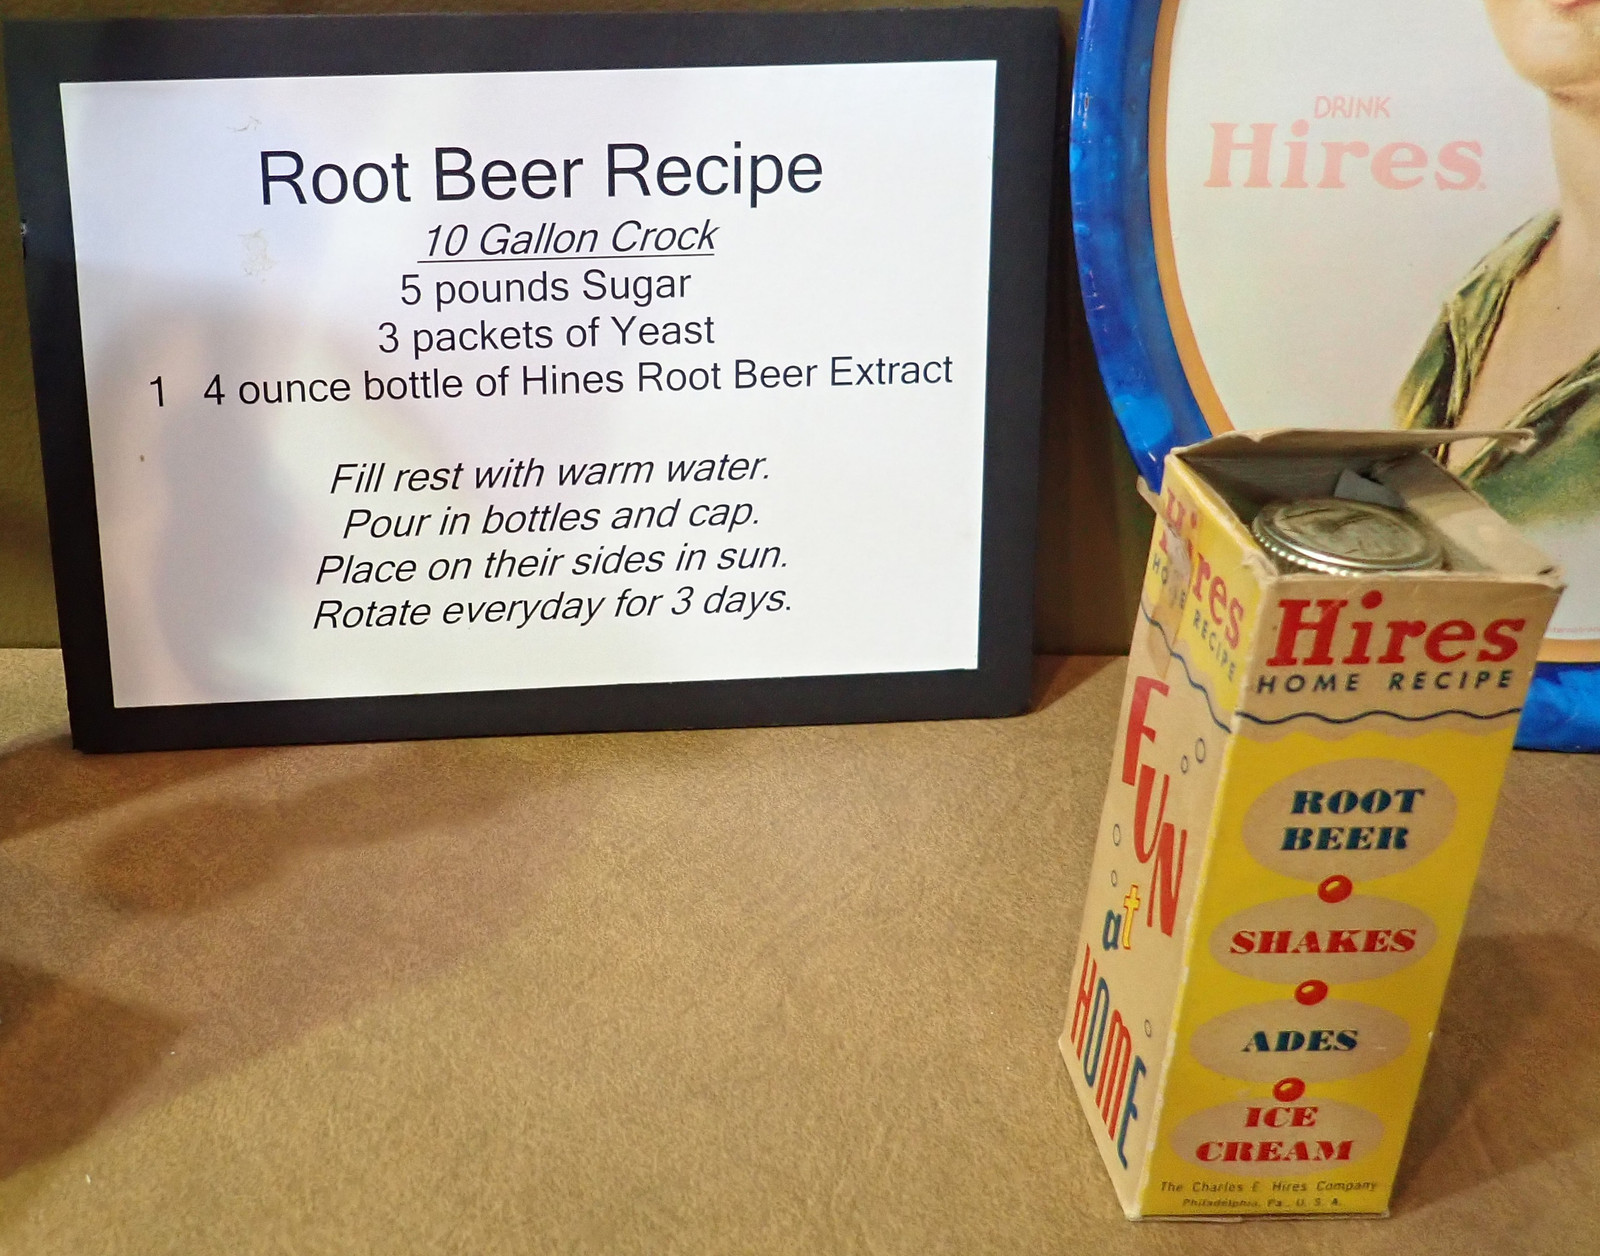 Root Beer Recipe
10 Gallon Crock
5 pounds Sugar
3 packets of Yeast
1 4 ounce bottle of Hines Root Beer Extract
Fill rest with warm water.
Pour in bottles and cap.
Place on their sides in sun.
Rotate everyday for 3 days.
DRINK
Hires
Hires
HOME RECIPE
FUN
at
HOME
Hires
HOME RECIPE
ROOT
BEER
SHAKES
ADES
ICE
CREAM
The Charles E Hires Company
Philadelphia, Pa., U. S. A.